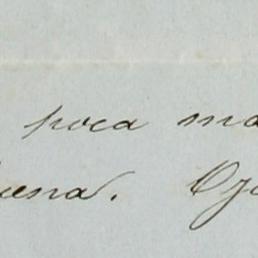 poca ma
uena. Oja